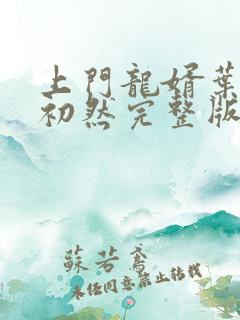 上門龍婿葉
初然完整版
蘇若鳶
未經同意禁止轉載